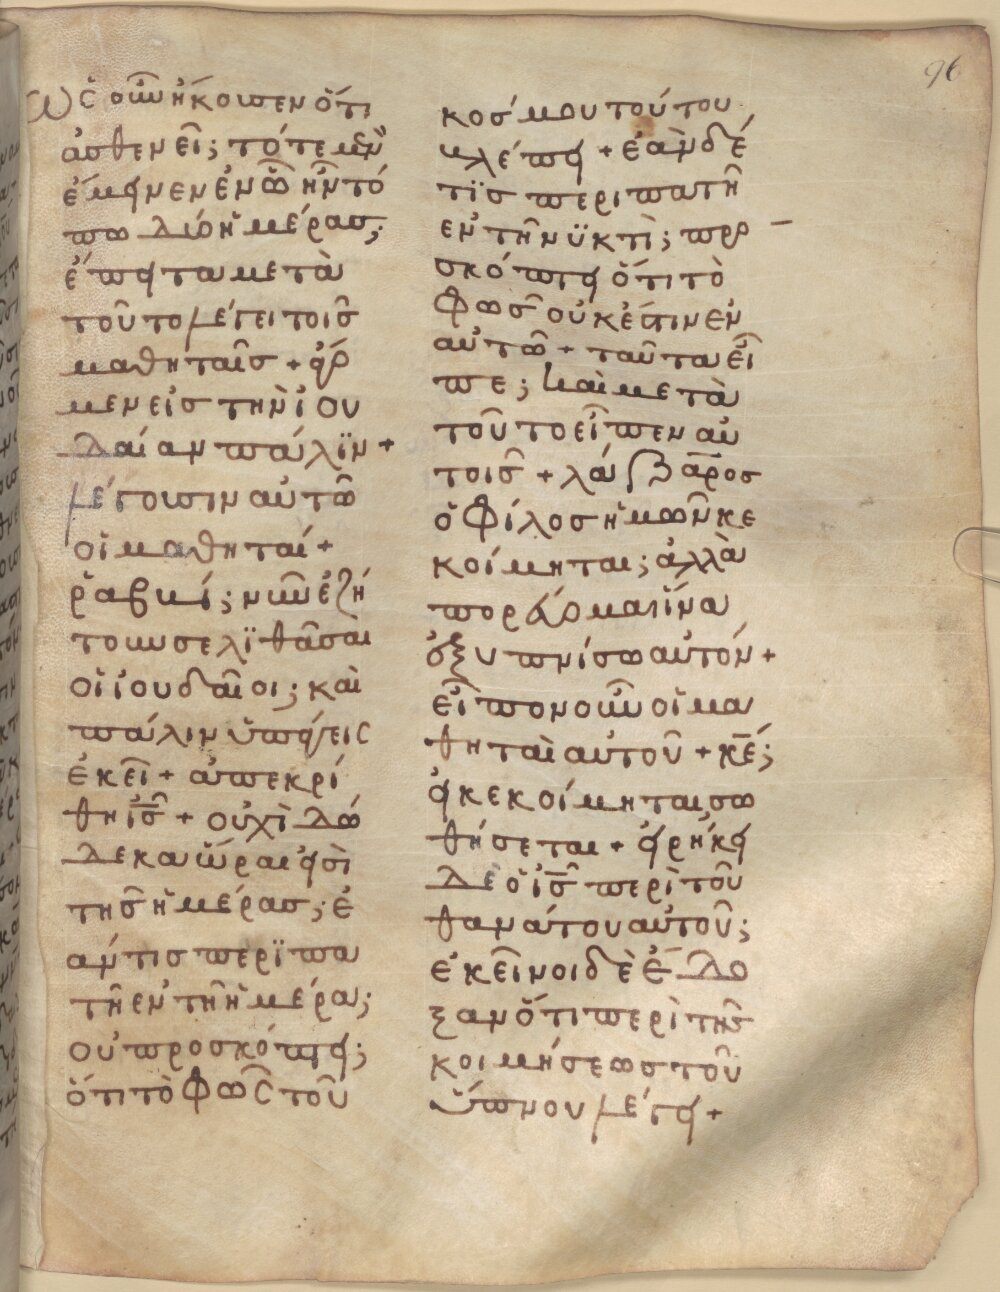 96
ὡς οὖν ἤκουσεν ὅτι
ἀσθενεῖ; τότε μὲν
ἔμεινεν ἐν ᾧ ἦν τό
πω δύο ἡμέρας;
ἔπειτα μετὰ
τοῦτο λέγει τοῖς
μαθηταῖς + ἄγω
μεν εἰς τὴν ἰου
δαίαν πάλϊν +
λέγουσιν αὐτῶ
οἱ μαθηταί +
ῥαββί; νῦν ἐζή
τουν σε λϊθᾶσαι
οἱ ἰουδαῖοι; καὶ
πάλιν ὑπάγεις
ἐκεῖ + ἀπεκρί
θη ἰς̅ + οὐχὶ δώ
δεκα ὧραι εἰσὶ
τῆς ἡμέρας; ἐ
άν τις περϊπα
τῆ ἐν τῆ ἡμέρα;
οὐ προσκόπτει;
ὅτι τὸ φῶς τοῦ
κόσμου τούτου
βλέπει + ἐὰν δέ
τϊς περιπατῆ
ἐν τῆ νϋκτὶ; προ
σκόπτει ὅτι τὸ
φῶς οὐκ ἔστιν ἐν
αὐτῶ + ταῦτα εἶ
πε; καὶ μετὰ
τοῦτο εἶπεν αὐ
τοῖς + λάζαρος
ὁ φίλος ἡμῶν κε
κοίμηται; ἀλλὰ
πορεύομαι ἵνα
ἐξυπνίσω αὐτόν +
εἶπον οὖν οἱ μα
θηταὶ αὐτοῦ + κ̅ε̅;
εἰ κεκοίμηται σω
θήσεται + εἰρήκει
δὲ ὁ ἰς̅ περὶ τοῦ
θανάτου αὐτοῦ;
ἐκεῖνοι δὲ ἔδο
ξαν ὅτι περὶ τῆς
κοιμήσεως τοῦ
ὕπνου λέγει +